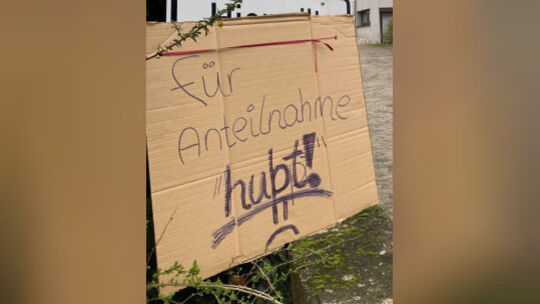 für
Anteilnahme
"hupt!"